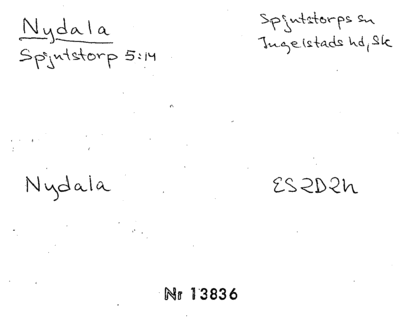 Nydala
Spjutstorp 5:14
Spjutstorps sn
Ingelstads hd, Sk
Nydala
ES2D2h
Nr 13836